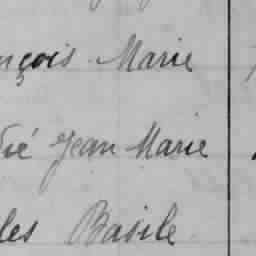 nçois Marie
Jean Marie
les Basile